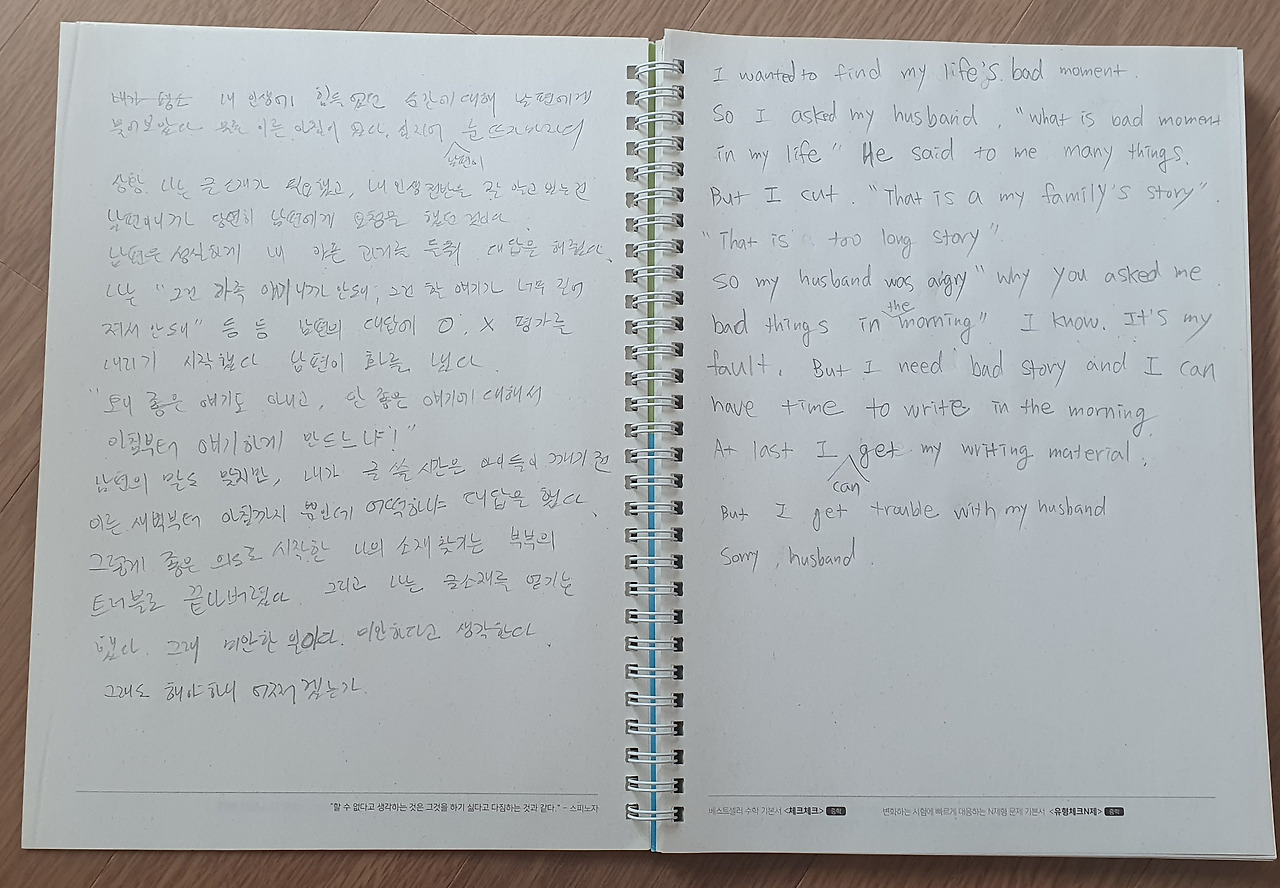 내 인생에 힘들었던 순간에 대해 남편에게
물어보았다 이른 아침이었다. 심지어 눈 뜨자마자
남편이
상황. 나는 글소재가 필요했고, 내 인생 전반을 잘 알고 있는건
남편이니까 당연히 남편에게 요청을 했던 것이다
남편은 성실하게 내 아픈 과거를 들춰 대답을 해줬다.
나는 "그건 가족 얘기니까 안돼, 그건 할 얘기가 너무 길어
져서 안돼" 등 등 남편의 대답에 O, X 평가를
내리기 시작했다 남편이 화를 냈다.
"도대 좋은 얘기도 아니고, 안 좋은 얘기에 대해서
아침부터 얘기하게 만드느냐!"
남편의 말도 맞지만, 내가 글 쓸 시간은 아이들이 깨기 전
이른 새벽부터 아침까지 뿐인데 어떡하냐 대답을 했다.
그렇게 좋은 의도로 시작한 나의 소재 찾기는 부부의
트러블로 끝나버렸다. 그리고 나는 글소재를 얻기는
했다. 그래 미안한 일이다. 미안하다고 생각한다.
그래도 해야하니 어쩌겠는가.
"할 수 없다고 생각하는 것은 그것을 하기 싫다고 다짐하는 것과 같다." – 스피노자
I wanted to find my life's bad moment.
So I asked my husband. "what is bad moment
in my life" He said to me many things.
But I cut. "That is a my family's story".
"That is too long story".
So my husband was angry "why you asked me
bad things in the morning" I know. It's my
fault. But I need bad story and I can
have time to write in the morning.
At last I can get my writing material.
But I get trouble with my husband
Sorry, husband.
베스트셀러 수학 기본서 <체크체크> 중학 변화하는 시험에 빠르게 대응하는 N제형 문제 기본서 <유형체크N제> 중학